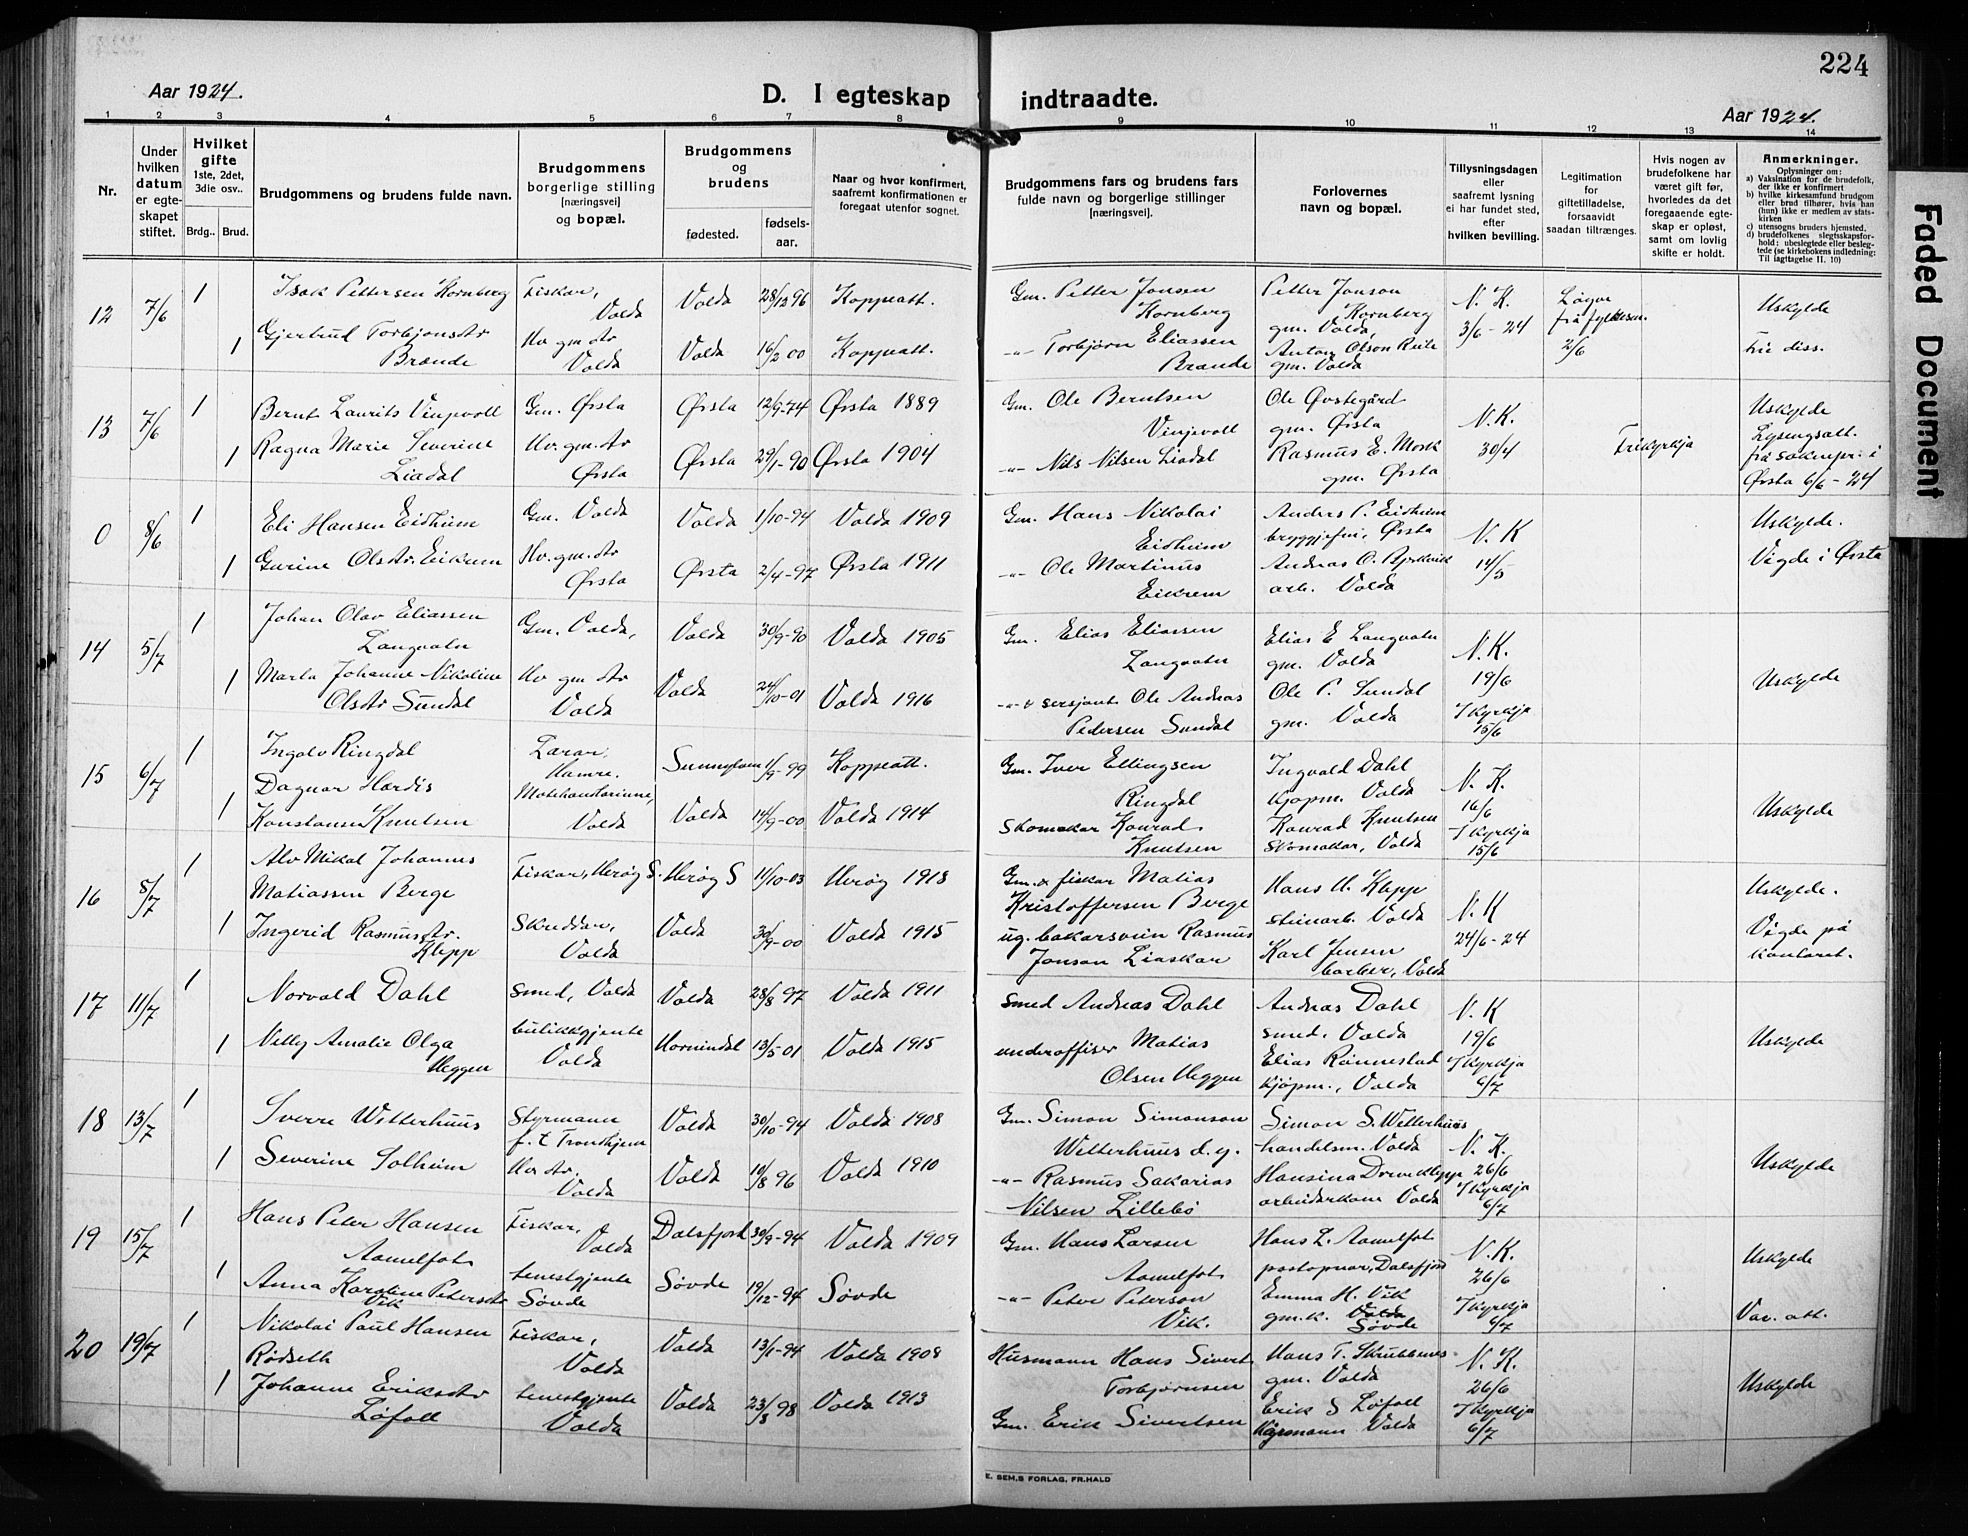 224
Aar 1924.
D. I egteskap indtraadte.
Aar 1924.
1 2 3 4 5 6 7 8 9 10 11 12 13 14
Nr.
Under hvilken datum er egteskapet stiftet.
Hvilket gifte 1ste, 2det, 3die osv..
Brdg.. Brud.
Brudgommens og brudens fulde navn.
Brudgommens borgerlige stilling [næringsvei] og bopæl.
Brudgommens og brudens
fødested.
fødselsaar.
Naar og hvor konfirmert, saafremt konfirmationen er foregaat utenfor sognet.
Brudgommens fars og brudens fars fulde navn og borgerlige stillinger [næringsvei].
Forlovernes navn og bopæl.
Tillysningsdagen eller saafremt lysning ei har fundet sted, efter hvilken bevilling.
Legitimation for giftetilladelse, forsaavidt saadan tiltrænges.
Hvis nogen av brudefolkene har været gift før, hvorledes da det foregaaende egteskap er opløst, samt om lovlig skifte er holdt.
Anmerkninger.
Oplysninger om:
a) Vaksination for de brudefolk, der ikke er konfirmert
b) hvilke kirkesamfund brudgom eller brud tilhører, hvis han (hun) ikke er medlem av statskirken
c) utensogns bruders hjemsted.
d) brudefolkenes slegtsskapsforhold: ubeslegtede eller beslegtede (se kirkebokens indledning: Til iagttagelse II. 10)
12 7/6 1 Isak Pettersen Hornberg Fiskar, Volda Volda 28/12 96 Koppeatt. Gm. Petter Jonsen Hornberg Petter Jonson Hornberg gm. Volda, N. K. 3/6 - 24 Løyve frå fylkesm. 2/6 Uskylde
1 Gjertrud Torbjønsdtr Brænde Hv gm dtr Volda Volda 16/2 00 Koppeatt. -"- Torbjørn Eliassen Brænde Anton Olson Reite gm. Volda frie diss.
13 7/6 1 Bernt Laurits Vinjevoll Gm. Ørsta Ørsta 12/9-74 Ørsta 1889 Gm. Ole Berntsen Vinjevoll Ole Øvstegård gm. Ørsta N. K. 30/4 Frikyrkja Uskylde Lysingsatt. frå sokenpr. i Ørsta 6/6 - 24
1 Ragna Marie Severine Liadal Hv. gm. dtr Ørsta Ørsta 29/1-90 Ørsta 1904 -"- Nils Nilsen Liadal Rasmus E. Mork gm. Ørsta
0 8/6 1 Eli Hansen Eidheim Gm. Volda Volda 1/10-94 Volda 1909 Gm. Hans Nikolai Eidheim Anders P. Eidheim Ørsta N. K 14/5 Uskylde. Vigde i Ørsta
1 Gurine Olsdtr. Eikrem Hv. gm. dtr Ørsta Ørsta 2/4-97 Ørsta 1911 -"- Ole Martinus Eikrem Andras O. arb. Volda
14 5/7 1 Johan Olav Eliassen Langvatn Gm. Volda, Volda 30/9-90 Volda 1905 Gm. Elias Eliassen Langvatn Elias E Langvatn gm. Volda N. K. 19/6 I kyrkja 15/6 Uskylde
1 Marta Johanne Nikoline Olsdtr Sundal Hv gm dtr Volda Volda 24/10-01 Volda 1916 -"- & sersjant Ole Andreas Pedersen Sundal Ole P. Sundal gm. Volda
15 6/7 1 Ingolv Ringdal Lærar, Hamre. Sunnylven 1/9-99 Koppeatt. Gm. Iver Ellingsen Ringdal Ingvald Dahl kjøpm. Volda N. K. 16/6 I kyrkja 15/6 Uskylde
1 Dagnar Hardis Konstanse Knutsen Motehandlarinne, Volda Volda 14/9-00 Volda 1914 Skomakar Konrad Knutsen Konrad Knutsen skomakar, Volda
16 8/7 1 Alv Mikal Johannes Matiassen Berge Fiskar, Herøy S. Herøy S 11/10-03 Herøy 1918 Gm. & fiskar Matias Kristoffersen Berge Hans H. Klepp steinarb. Volda N. K 24/6-24 Uskylde. Vigde på kontoret.
1 Ingerid Rasmusdtr. Klepp Skreddar, Volda Volda 30/9-00 Volda 1915 ug. bakarsvein Rasmus Jonson Liaskar Karl Jensen barber, Volda
17 11/7 1 Norvald Dahl smed, Volda Volda 28/8 97 Volda 1911 smed Andreas Dahl Andreas Dahl smed. Volda N. K 19/6 I kyrkja 6/7 Uskylde
1 Nelly Amalie Olga Heggen butikkgjente Volda Hornindal 13/5 01 Volda 1915 underoffiser Matias Olsen Heggen Elias Rønnestad kjøpm., Volda
18 13/7 1 Sverre Witterhuus Styrmann f. t Trondhjem Volda 30/10-94 Volda 1908 Gm. Simon Simonson Witterhuus d. y. Simon S. Witterhuus handelsm. Volda N. K. 26/6 I kyrkja 6/7 Uskylde
1 Severine Solheim Hv dtr. Volda Volda 10/8 96 Volda 1910 -"- Rasmus Sakarias Nilsen Lillebø Hansina Driveklepp arbeidarkone Volda
19 15/7 1 Hans Peter Hansen Aamelfot Fiskar, Volda Dalsfjord 30/9-94 Volda 1909 Gm. Hans Larsen Aamelfot Hans L. Aamelfot postopnar, Dalsfjord N. K. 26/6 I kyrkja 6/7 Uskylde
1 Anna Karoline Petersdtr Vik tenestgjente Søvde Søvde 19/12-94 Søvde -"- Peter Peterson Vik. Emma H. Vik gm. k. Volda Søvde Vac. att.
20 19/7 1 Nikolai Paul Hansen Rødseth Fiskar, Volda Volda 13/1-94 Volda 1908 Husmann Hans Sivert Torbjørnsen Hans T. Skrubbnes gm. Volda N. K. 26/6 I kyrkja 6/7 Uskylde
1 Johanne Eriksdtr Løfoll tenestgjente Volda Volda 23/8 98 Volda 1913 Gm. Erik Sivertsen Erik S Løfoll Volda
E. SEM.S FORLAG, FR.HALD
Faded Document